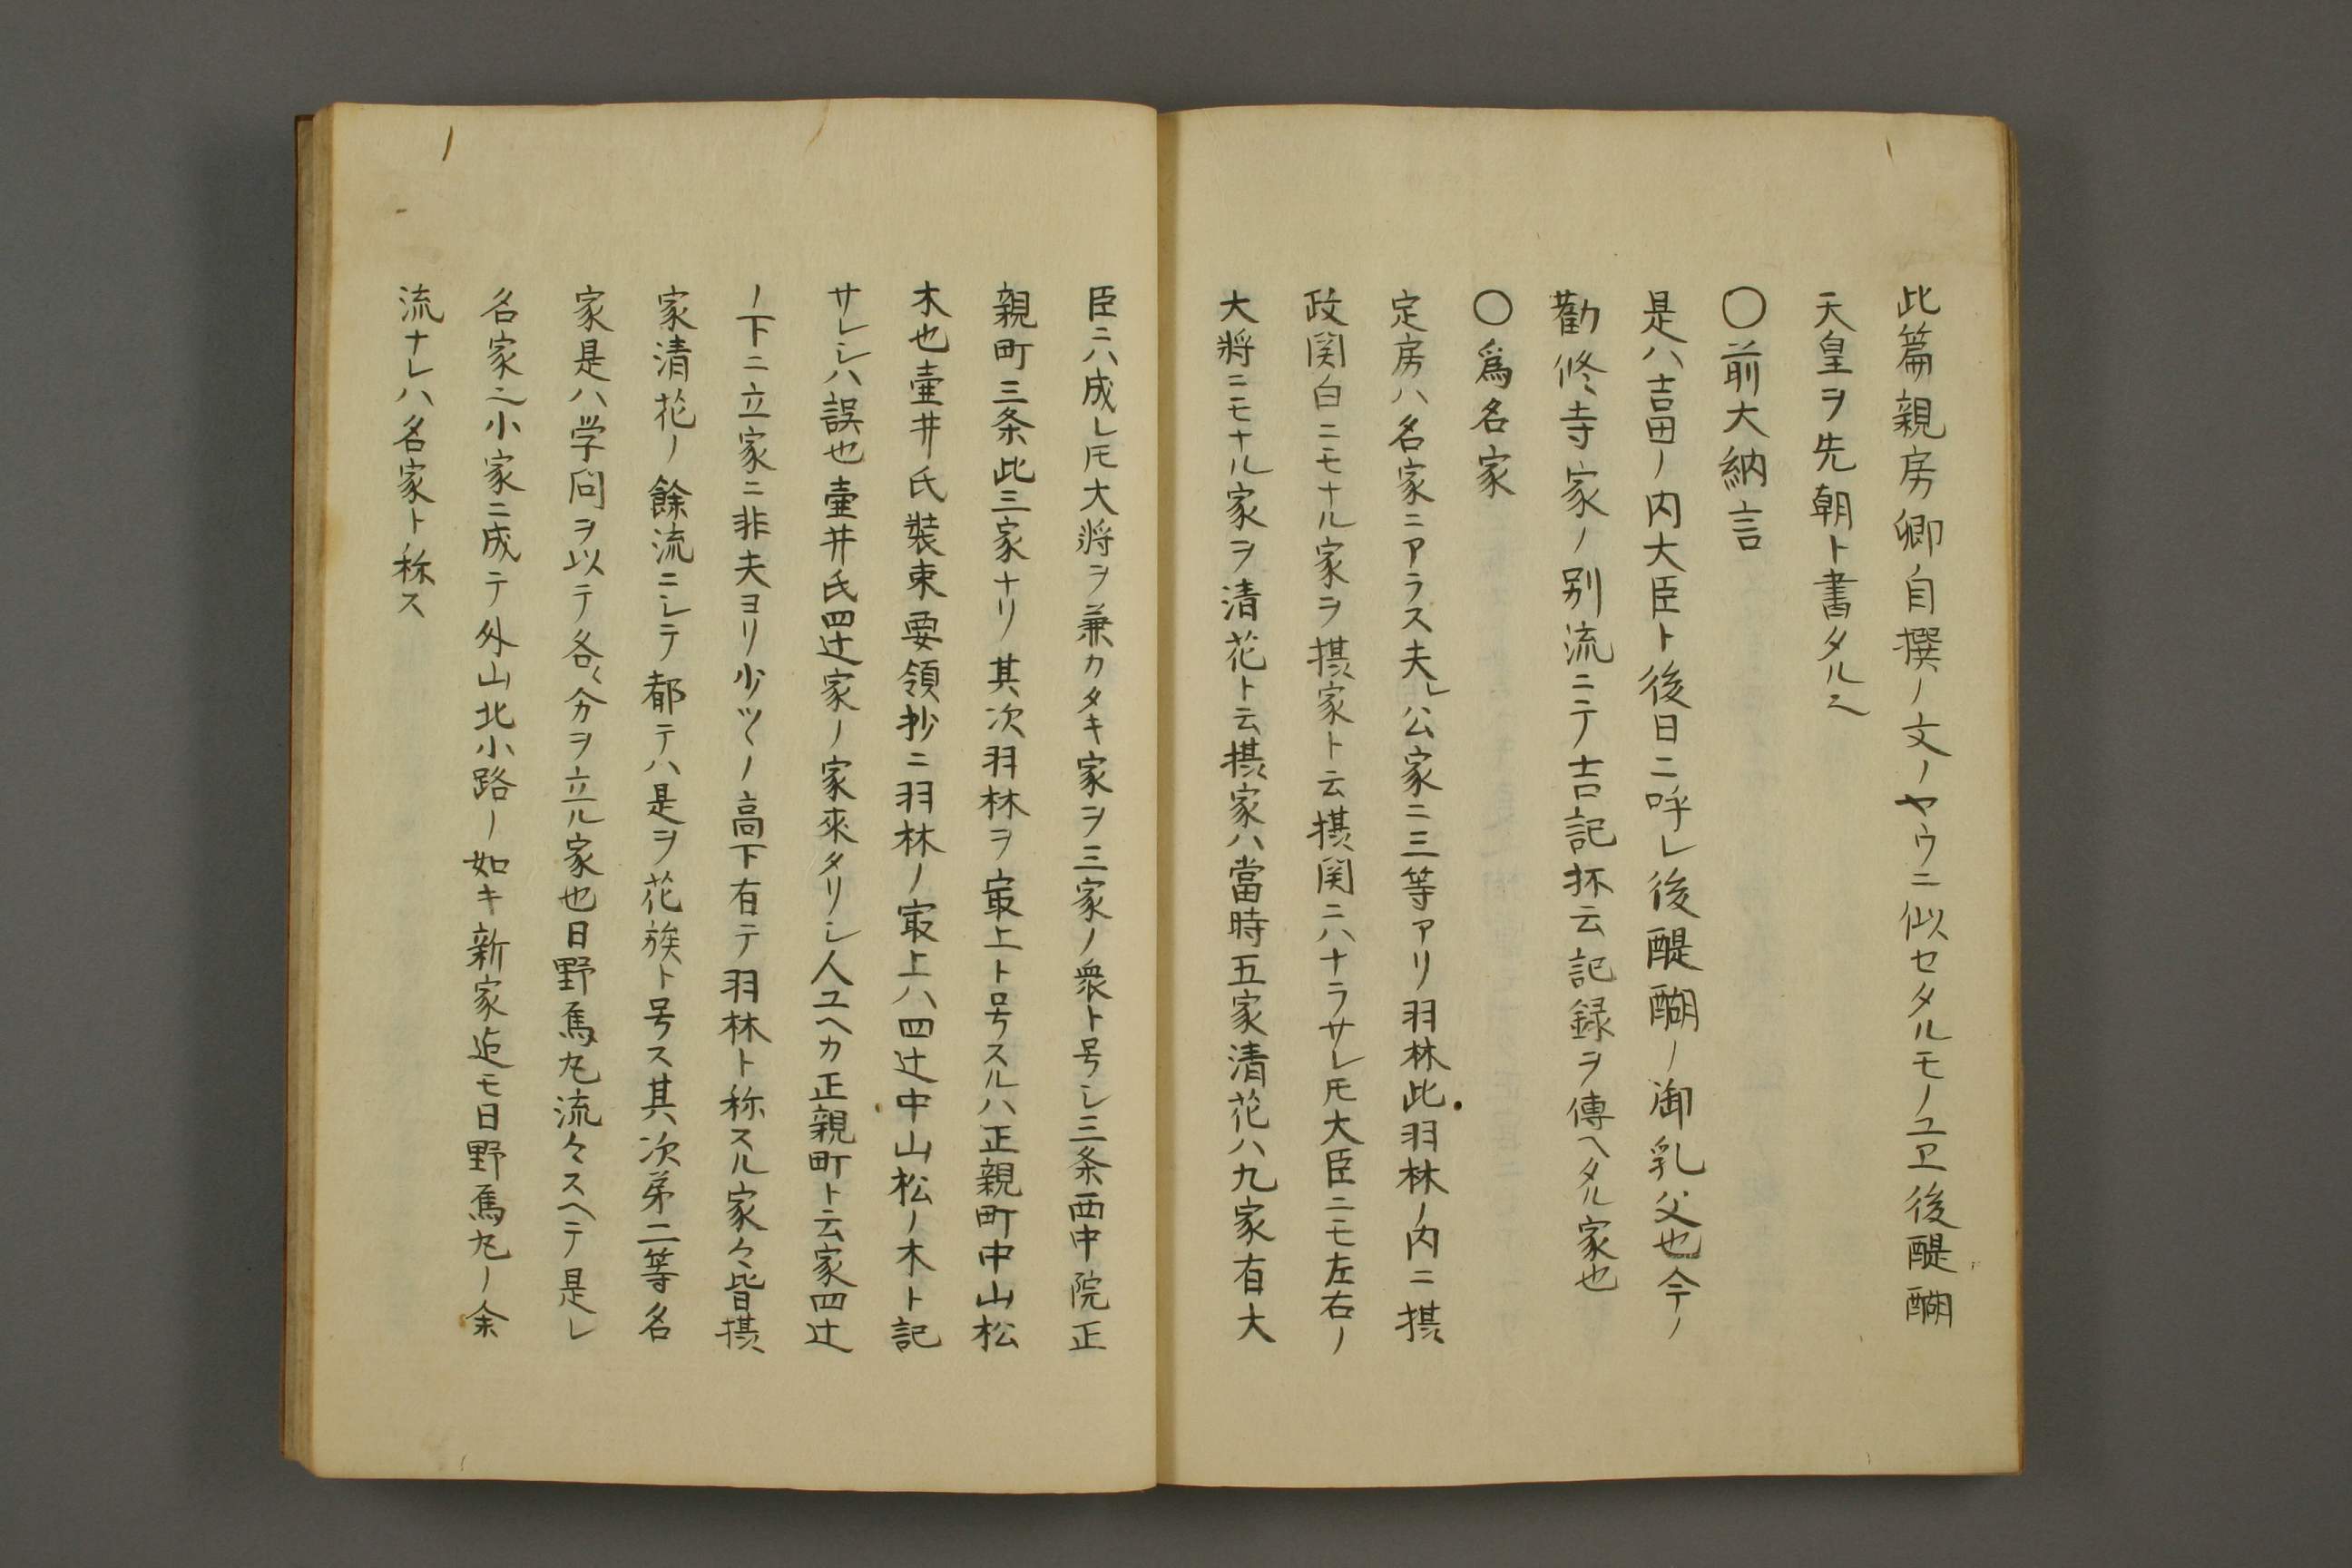 此篇親房卿自撰ノ文ノヤウニ似セタルモノユヱ後醍醐
天皇ヲ先朝ト書タル也
〇前大納言
是ハ吉田ノ内大臣ト後日ニ呼レ後醍醐ノ御乳父也今ノ
勸修寺家ノ別流ニテ吉記抔云記録ヲ傳ヘタル家也
〇爲名家
定房ハ名家ニアラス夫レ公家ニ三等アリ羽林此羽林ノ内ニ摂
政関白ニモナル家ヲ摂家ト云摂関ニハナラサレ𪜈大臣ニモ左右ノ
大將ニモナル家ヲ清花ト云摂家ハ當時五家清花ハ九家有大
臣ニハ成レ𪜈大將ヲ兼カタキ家ヲ三家ノ衆ト号シ三条西中院正
親町三条此三家ナリ其次羽林ヲ最上ト号スルハ正親町中山松
木也壷井氏裝束要領抄ニ羽林ノ最上ハ四辻中山松ノ木ト記
サレシハ誤也壷井氏四辻家ノ家來タリシ人ユヘカ正親町ト云家四辻
ノ下ニ立家ニ非夫ヨリ少ツヽノ高下有テ羽林ト称スル家々皆摂
家清花ノ餘流ニシテ都テハ是ヲ花族ト号ス其次第二等名
家是ハ学问ヲ以テ各〻分ヲ立ル家也日野烏丸流々スヘテ是レ
名家之小家ニ成テ外山北小路ノ如キ新家迠モ日野烏丸ノ余
流ナレハ名家ト称ス